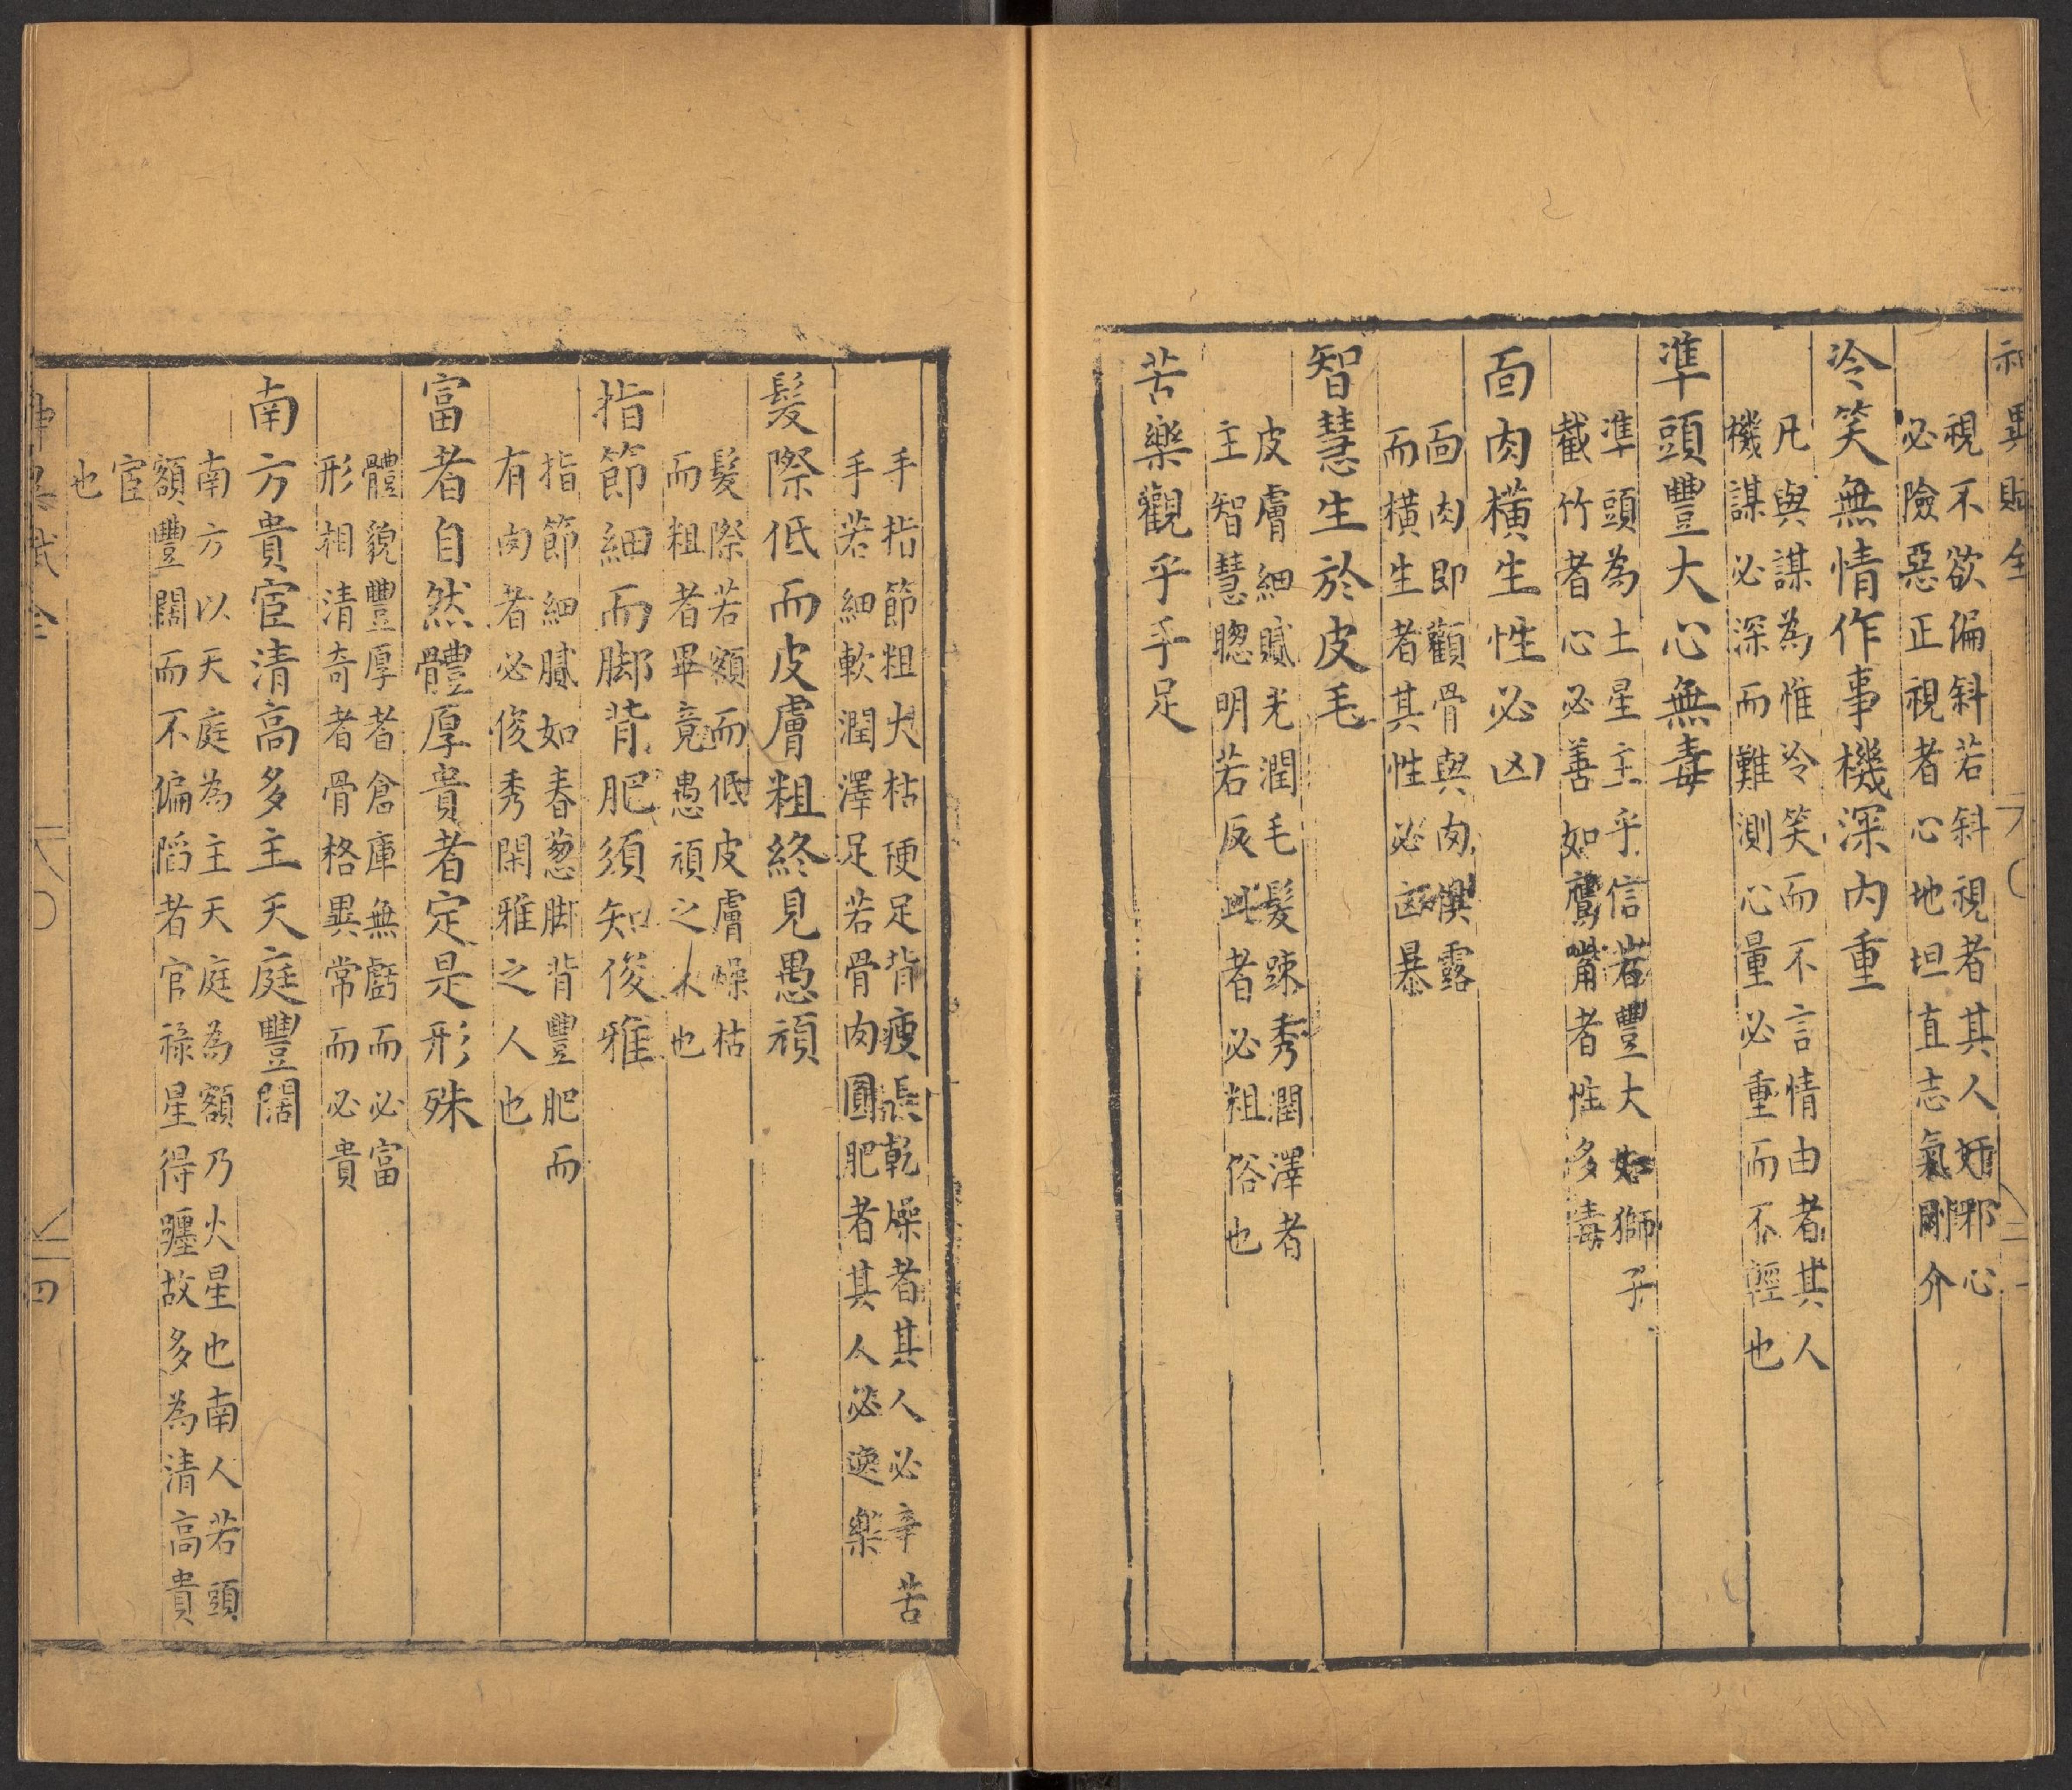 神異賦全
視不欲偏斜若斜視者其人奸邪心
必險惡正視者心地坦直志氣剛介
冷笑無情作事機深內重
凡與謀為惟冷笑而不言情由者其人
機謀必深而難測心量必重而不輕也
準頭豐大心無毒
準頭為土星主乎信若豐大如獅子
截竹者心必善如鷹嘴者性多毒
面肉橫生性必凶
面肉即顴骨與肉橫露
而橫生者其性必凶暴
智慧生於皮毛
皮膚細膩光潤毛髮踈秀潤澤者
主智慧聰明若反此者必粗俗也
苦樂觀乎手足
手指節粗大枯硬足背瘦長乾燥者其人必辛苦
手若細軟潤澤足若骨肉圓肥者其人必逸樂
髮際低而皮膚粗終見愚頑
髮際若額而低皮膚燥枯
而粗者畢竟愚頑之人也
指節細而脚背肥須知俊雅
指節細膩如春葱脚背豐肥而
有肉者必俊秀閑雅之人也
富者自然體厚貴者定是形殊
體貌豐厚者倉庫無虧而必富
形相清奇者骨格異常而必貴
南方貴宦清高多主天庭豐闊
南方以天庭為主天庭為額乃火星也南人若頭
額豐闊而不偏陷者官祿星得躔故多為清高貴
宦
也
神異賦全
四